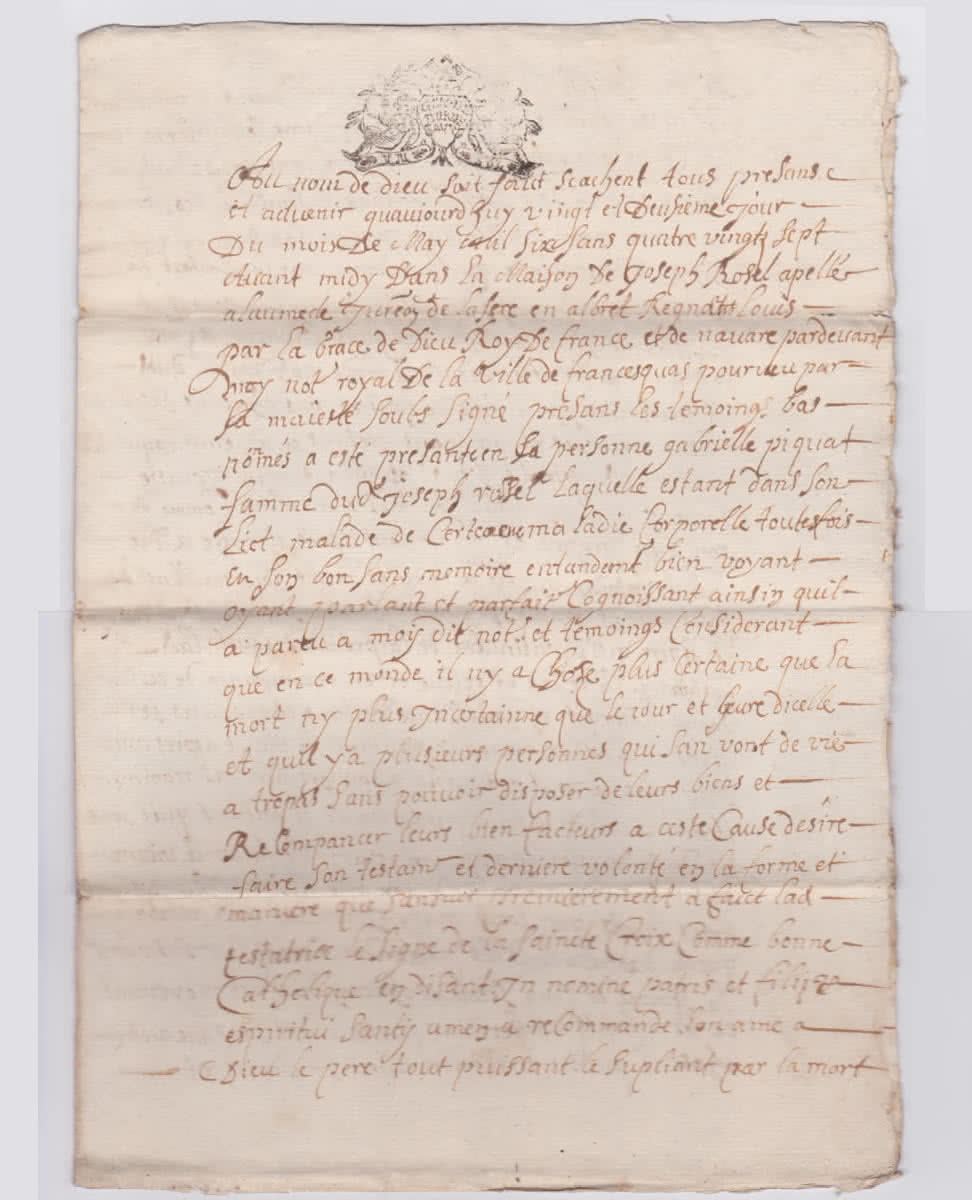 Au nom de dieu soit faict scachent tous presans e
et advenir quaujourdhuy vingt et Deusieme jour
Du mois De May mil six sans quatre vingtz sept
Avant midy Dans la Maison De joseph Rosel apellé
a laumede jure͠on de lasere en albret Regnāt Louis
par la Grace de Dieu Roy De france et de navare pardevant
moy not.e royal De la Ville de francesquas pourveu par
sa maieste soubs signé presans les temoings bas
nom̃és a esté presante en sa personne gabrielle piquat
famme dud. joseph rosel laquelle estant dans son
Lict malade de Certene maladie Corporelle toutesfois
en son bon sans memoire entandemt bien voyant
oyant parlant et parfait Cognoissant ainsin quil
a pareu a moy dit not.e et temoings Considerant
que en ce monde il ny a Choze plus Certaine que la
mort ny plus jncertainne que le iour et heure dicelle
et quil ya plusieurs personnes qui san vont de vie
a trepas sans pouvoir disposer de leurs biens et
ReCompancer leurs bien facteurs a ceste Cause desire
faire son testamt et derniere volonté en la forme et
maniere que sansuit premierement a faict lad
testatrice le signe de la saincte Croix Comme bonne
Catholique en disant jn nomine patris et filij et
espiritui santy amen a recommandé son ame a
Dieu le pere tout puissant le supliant par la mort